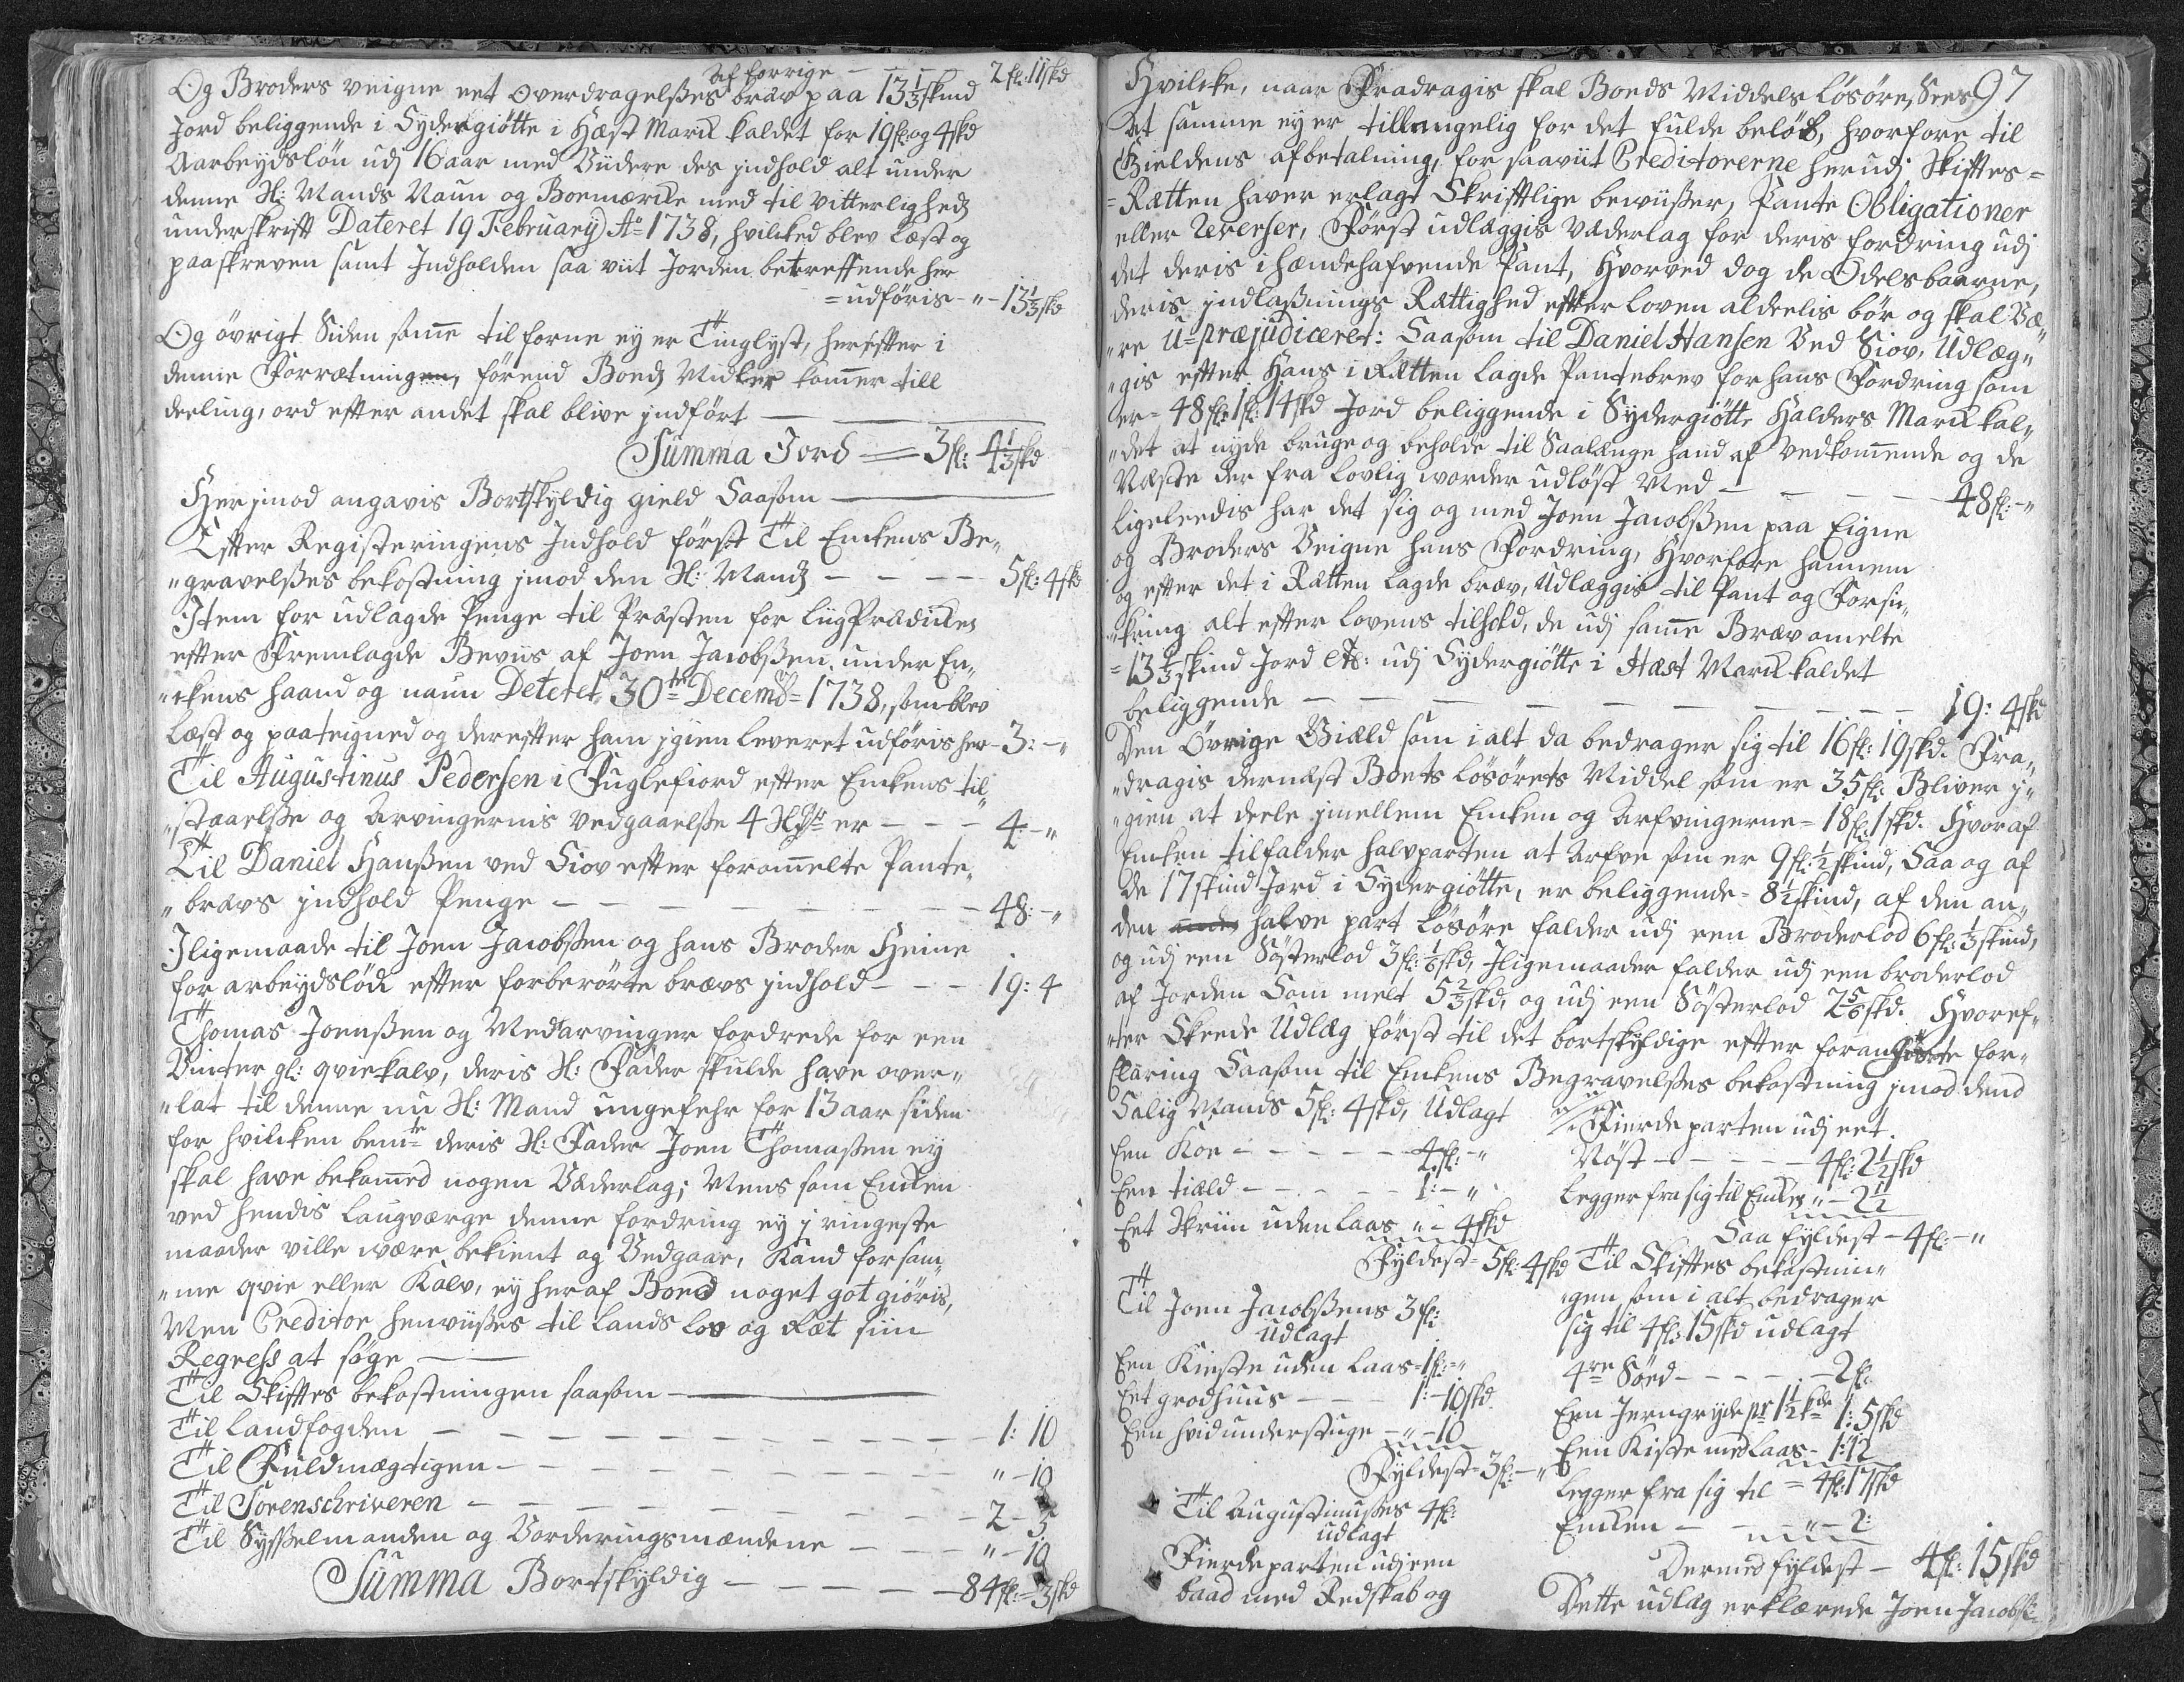 Af forrige — — — 2 fl: 11 skd
Og Broders veigne eet Overdragelßes bræv paa 13 1/3 skind
Jord beliggende i Sydergiötte i Hæst Marck kaldet for 19 fl: og 4 skd
Aarbeydslön udj 16 aar med Viidere des jndhold alt under
denne Sl: Mands Naun og Boemærcke med til Vitterligheds
underskrift Dateret 19 February Ao 1738, hvilcked blev læst og
paaskreven samt Jndholden saa viit Jorden betreffende her
= udföris - " - 13 1/3 skd
Og övrigt Siden samme tilforne ey er Tinglyst, herefter i
denne Forrætningen, förend Boeds Midler kommer till
deeling, ord efter andet skal blive jndfört —
Summa Jord = 3 fl: 4 1/3 skd
Her jmod angavis Bortskyldig gield Saasom —
Efter Registeringens Jndhold först Til Enckens Be„
„gravelßes bekostning jmod den Sl: Mands — — — — 5 fl: 4 skd
Jtem for udlagde Penge til Præsten for Liig Prædicken
efter Fremlagde Beviis af Joen Jacobßen under En„
„ckens haand og naun Deteret 30te Decemb = 1738, som blev
læst og paateigned og derefter ham jgien leveret udföris her - 3: - "
Til Augustinus Pedersen i Fuglefiord efter Enckens til„
„staaelße og Arvingernis vedgaaelße 4 er — — — 4 - "
Til Daniel Hanßen ved Siov efter forommelte Pante„
„brævs jndhold Penge — — — — — — — 48: - "
Jligemaade til Joen Jacobßen og hans Broder Heine
for arbeydslön efter forberörte brævs jndhold — — — 19: 4
Thomas Joenßen og Medarvinger fordrede for een
Vinter gl: qviekalv, deris Sl: Fader skulde have over„
„lat til denne nu Sl: Mand ungefehr for 13 aar siden
for hvilcken bemte deris Sl: Fader Joen Thomaßen ey
skal have bekommed nogen Vederlag; Mens som Encken
ved hendis Laugværge denne fordring ey j ringeste
maader ville være bekient og Vedgaae, Kand for sam„
„me qvie eller Kalv, ey heraf Boed noget got giöris,
Men Creditor henviißes til Lands Lov og Ræt siin
Regress at söge —
Til Skiftes bekostningen saasom —
Til Landfogden — — — — — — — — 1: 10
Til Fuldmægtigen — — — — — — — " - 10
Til Sorenschriveren — — — — — — — 2 - 5
Til Sysselmanden og Vorderingsmændene — — — " - 10
Summa Bortskyldig — — — — — 84 fl: - 3 skd
97
Hvilcke, naar Fradragis skal Boeds Middels Lösöre, Sees
At samme ey er tillengelig for det fulde belöb, hvorfore til
Gieldens afbetalning, for saaviit Creditorerne herudj Skiftes =
= Rætten haver erlagt Skriftlige beviißer, Pante Obligationer
eller Reverser, Först udlæggis Vederlag for deris fordring udj
det deris ihændehafvende Pant, Hvorved dog de Odelsbaarne,
deris jndlaßnings Rættighed efter Loven aldeelis bör og skal Væ„
„re U=præjudiceret: Saasom til Daniel Hansen Ved Siov, Udlæg„
„gis efter Hans i Rætten lagde Pantebrev for hans Fordring som
er = 48 fl: 1 fl: 14 skd Jord beliggende i Sydergiötte Halders Marck kal„
„det at nyde bruge og beholde til Saalænge hand af vedkommende og de
Næste der fra lovlig worder udlöst Med — — — — — 48 fl: - "
Ligeleedis har det sig og med Joen Jacobßen paa Eigne
og Broders Veigne hans Fordring, Hvorfore hannem
og efter det i Rætten lagde bræv, Udlæggis til Pant og Forsic„
„kring alt efter Lovens tilhold, de udj samme Bræv omelte
= 13 1/3 skind Jord : udj Sydergiötte i Hæst Marck kaldet
beliggende — — — — — — — — — 19: 4 skd
Den Övrige Giæld som i alt da bedrager sig til 16 fl: 19 skd. Fra„
„dragis dernæst Boets lösörets Middel som er 35 fl: Bliver j„
„gien at deele jmellem Encken og Arfvingerne = 18 fl: 1 skd. Hvoraf
Encken tilfalder halvparten at Arfve som er 9 fl: 1/2 skind, Saa og af
de 17 skind Jord i Sydergiötte, er beliggende = 8 1/2 skind, af den an„
den halve part Lösöre falder udj een Broderlod 6 fl: 1/3 skind,
og udj een Sösterlod 3 fl: 1/6 skd, Jligemaader falder udj een broderlod
af Jorden Som melt 5 2/3 skd, og udj een Sösterlod 2 5/6 skd. Hvoref„
„ter Skeede Udlæg först til det bortskyldige efter for„
klaring Saasom til Enckens Begravelßes bekostning jmod dend
Salig Mands 5 fl: 4 skd, Udlagt
Een Koe — — — — — 4 fl: - "
Een tield — — — — — 1: - "
Eet Skriin uden laas " - 4 skd
Fyldest = 5 fl: 4 skd
Til Joen Jacobßens 3 fl:
Udlagt
Een Kieste uden laas = 1 fl: - "
Eet grodhuus — — — 1: - 10 skd
Een hvid understuge — " - 10
Fyldest = 3 fl: - "
Til Augustinußes 4 fl:
udlagt
Fierdeparten udj een
baad med Redskab og
Fierdeparten udj eet
Nöst — — — — — 4 fl: 2 1/2 skd
Legger fra sig til Encken " - 2 1/2
Saa fyldest - 4 fl: - "
Til Skiftes bekostnin„
„gen som i alt bedrager
sig til 4 fl: 15 skd udlagt
4re Söed — — — — — 2 fl:
Een Jerngryde 1 1/2 1: 5 skd
Een Kiste med laas - 1: 12
= 4 fl: 17 skd
Legger fra sig til
Encken — — — " - 2:
Dermed fyldest — 4 fl: 15 skd
Dette udlæg erklærede Joen Jacobß: